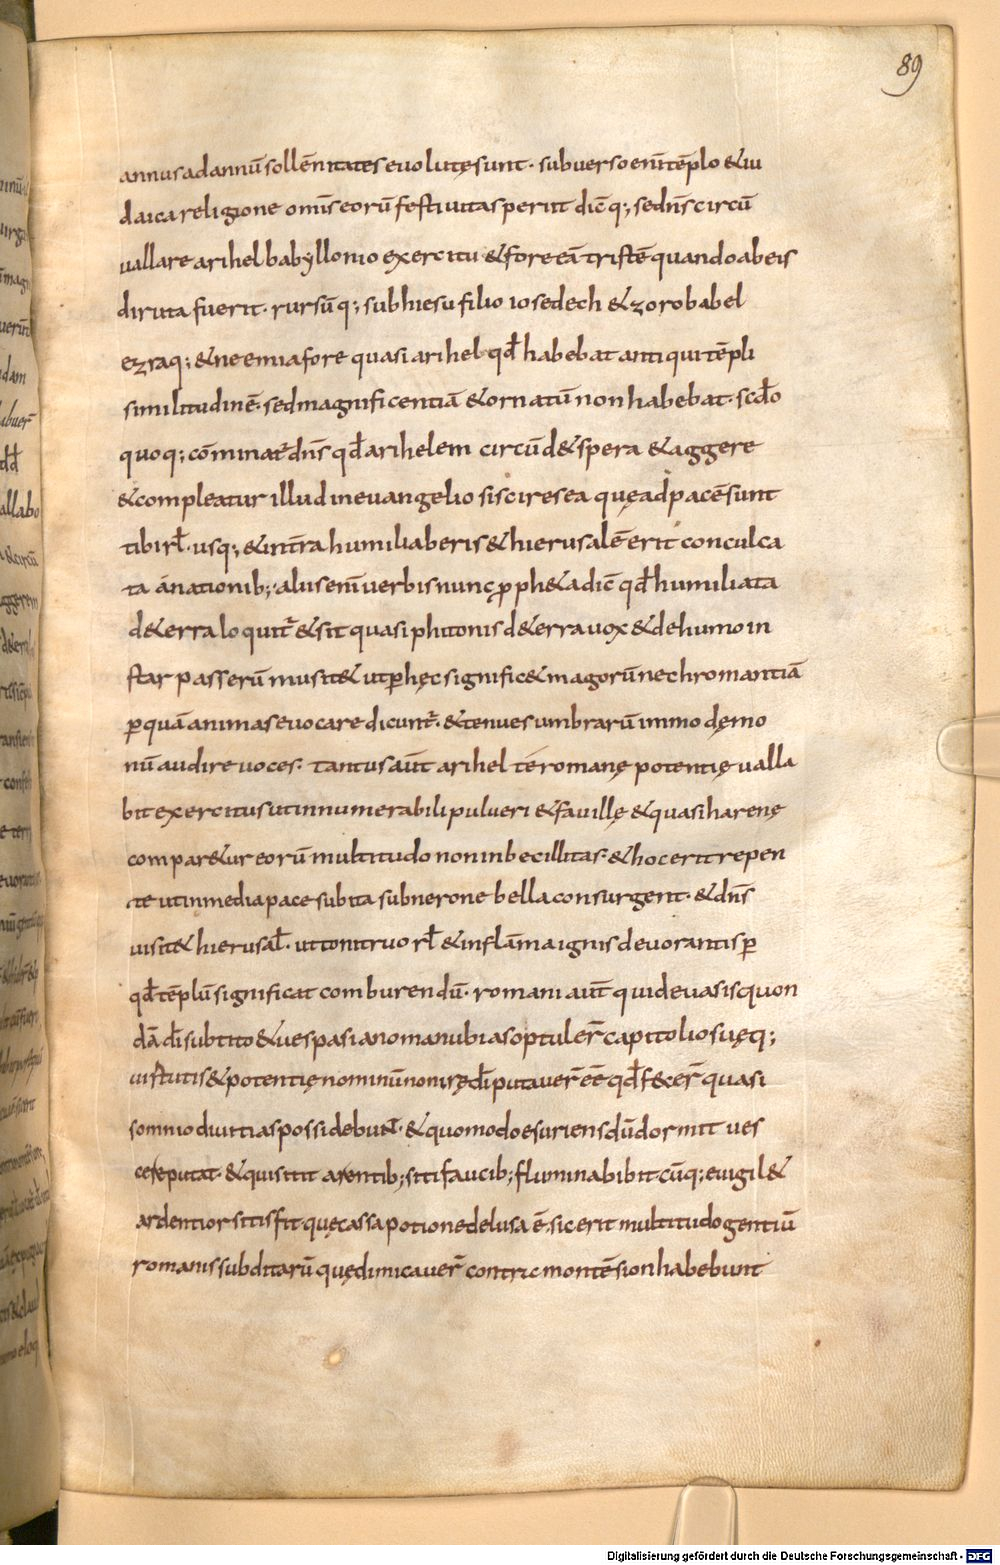 89
annus ad annū sollēnitates euolutę sunt. subuerso enī tēplo & iu
daica religione omīs eorū festiuitas periit dic̄q; sed dn̄s circū
uallare arihel babyllonio exercitu & fore eā tristē quando ab eis
diruta fuerit. rursūq; sub hiesu filio iosedech & zorobabel
ezraq; & neemia fore quasi arihel qđ habebat antiqui tēpli
similitudinē. sed magnificentiā & ornatū non habebat. scđo
quoq; cōminat̄ dn̄s qđ arihelem circūd& spera & aggere
& compleatur illud in euangelio si scires ea quę ad pacē sunt
tibi irł. usq; & in tr̄a humiliaberis & hierusalē erit conculca
ta a nationib; aliis enī uerbis nunc ꝓph&a dic̄ qđ humiliata
d& erra loquit̄ & sit quasi phitonis d& erra uox & de humo in
star passerū musit& ut ꝑ hęc signific& magorū nechromantiā
ꝑ quā animas euocare dicunt̄. & tenues umbrarū immo dęmo
nū audire uoces. tantus aūt arihel te romanę potentię ualla
bit exercitus ut innumerabili pulueri & fauillę & quasi harenę
compar&ur eorū multitudo non inbecillitas. & hoc erit repen
te ut in media pace subita sub nerone bella consurgent. & dn̄s
uisit& hierusał. ut tonitruo rł & inflāma ignis deuorantis ꝑ
qđ tēplū significat comburendū. romani aūt qui de uasis quon
dā di sub tito & uespasiano manubias optuler̄ capitolio suęq;
uirtutis & potentię nominū non irę di putauer̄ ēē qđ fecer̄ quasi
somnio diuitias possidebunt. & quomodo esuriens dū dormit ues
ce se putat. & qui sitit arentib; siti faucib; flumina bibit cūq; euigil&
ardentior sitis fit quę cassa potione delusa ē. sic erit multitudo gentiū
romanis subditarū quę dimicauer̄ contric montē sion habebunt
Digitalisierung gefördert durch die Deutsche Forschungsgemeinschaft - DFG